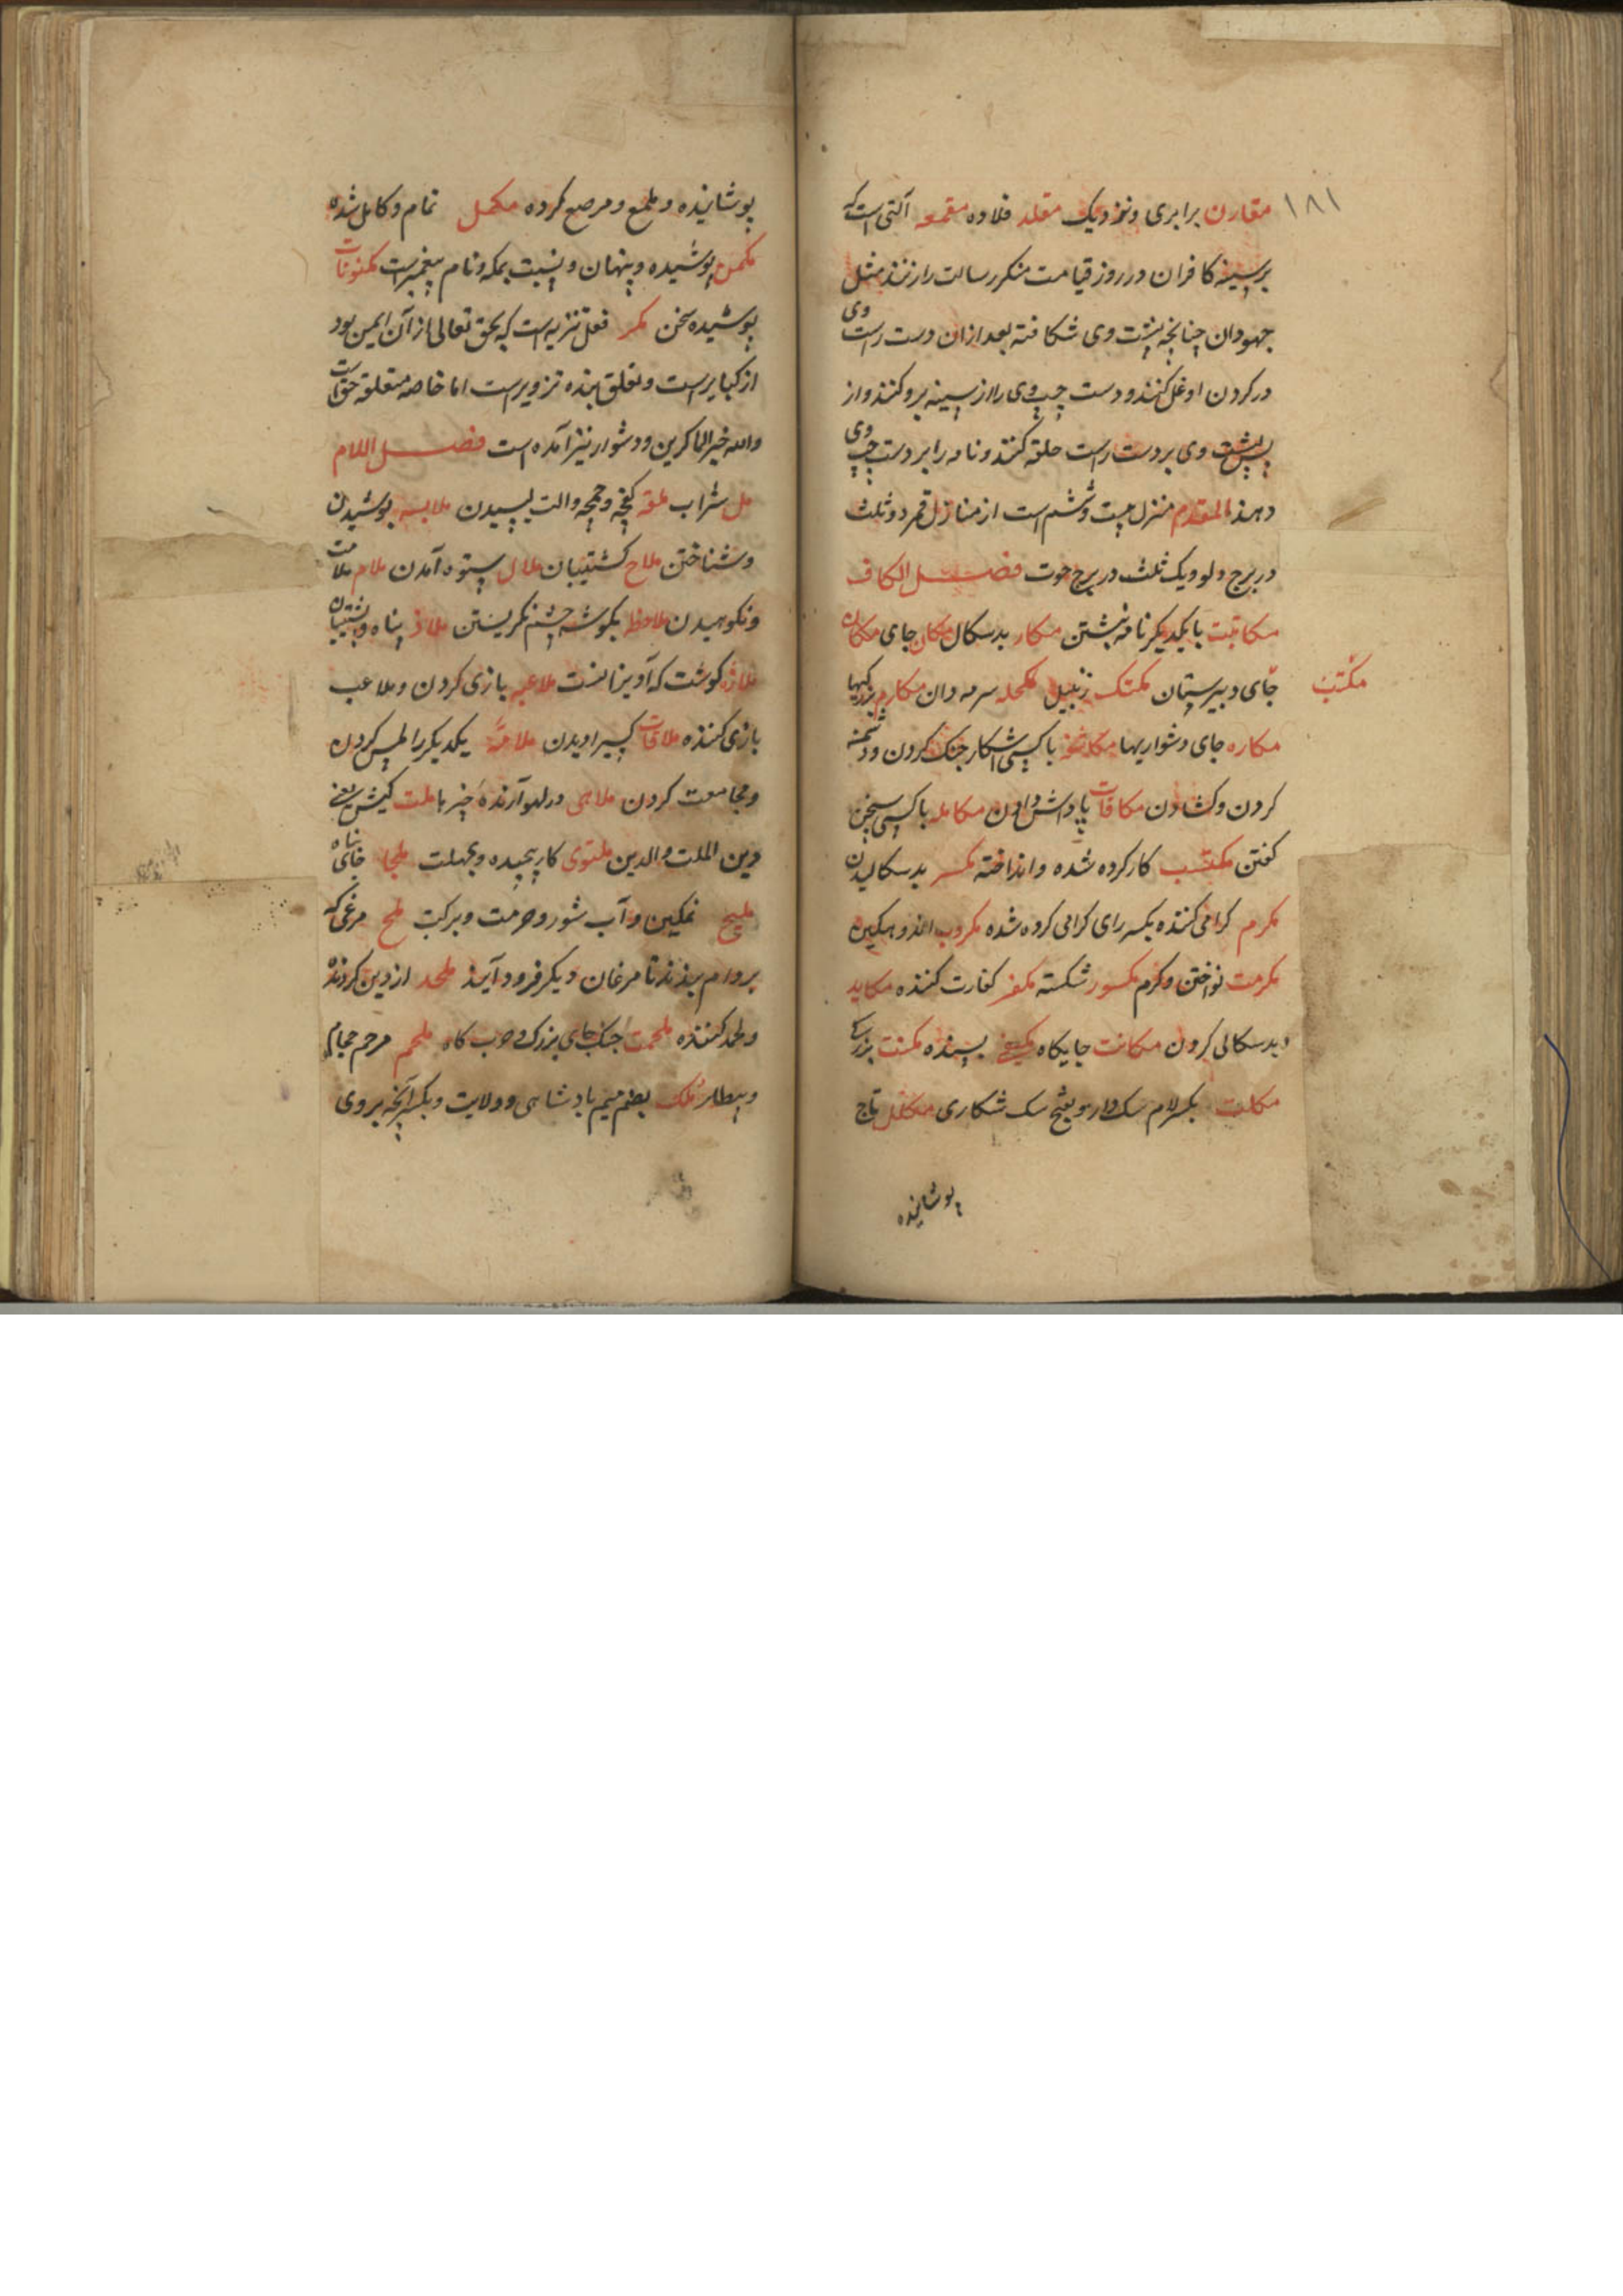 ۱۸۱
مقارن برابری و نزدیک مقلد قلاده مقمعه آلتی است که
بر سینه کافران در روز قیامت منکر رسالت را زنند مثل
جهودان چنانچه پشت وی شکافته بعد از ان دست راست وی
در کردن او غل کنند و دست چپ وی را از سینه برو کنند و از
پس پشت وی بر دست راست حلقه کنند و نامه را بر دست چپ وی
دهند المقدم منزل بیست و ششم است از منازل قمر دو ثلث
در برج دلو و یک ثلث در برج حوت فصل الکاف
مکاتبت با یکدیکر نامه نبشتن مکار بدسکال مکان جای مکان
مکتب
جای دبیرستان مکتک زنبیل مکحله سرمه دان مکارم بزرکیها
مکاره جای دشواریها با کسی آشکار جنک کردن و دشمنی
کردن و کشادن مکافات پاداش دادن مکالمه با کسی سخن
کفتن مکتسب کار کرده شده و انداخته بدسکالیدن
مکرم کرامی کننده بکسر رای کرامی کرده شده مکروب اندوهکین
مکرمت نواختن و کرم مکسور شکسته مکفر کفارت کننده مکاید
بدسکالی کردن مکانت جایکاه بسنده مکنت بزرکی
مکلت بکسر لام سک دار و بفتح سک شکاری مکلل تاج
پوشانیده
پوشانیده و ملمع و مرصع کرده مکمل تمام و کامل شده
مکمن پوشیده و پنهان و نسبت بمکه و نام پیغمبر است مکنونات
پوشیده سخن مکر فعل تنزیه است که بحق تعالی از آن ایمن بود
از کبایر است و تعلق بنده تزویر است اما خاصه متعلقه حق است
والله خیر الماکرین و دشوار نیز آمده است فصل اللام
مل شراب ملعقه کفچه و چمچه و الت لیسیدن ملابسه پوشیدن
و شناختن ملاح کشتیبان ملال ستوه آمدن ملام ملامت
و نکوهیدن ملاحظه بکوشه چشم نکریستن ملاذ پناه و پشتیبان
ملازه کوشت که آویزانست ملاعبه بازی کردن و ملاعب
بازی کننده ملاقات کسیرا دیدن یکدیکر را لمس کردن
و مجامعت کردن ملاهی در لهو آرنده خبر با ملت کیش یعنی
دین الملت والدین ملتوی کار پیچیده و بمهلت ملجا جای پناه
ملیح نمکین و آب شور و حرمت و برکت ملح مرغی که
بر دام بندند تا مرغان دیکر فرود آیند ملحد از دین کردنده
و لحد کننده ملحمت جنک جای بزرک و حرب کاه ملحم مرحم حجام
و بیطار ملک بضم میم پادشاهی و ولایت و بکسر آنچه بر وی